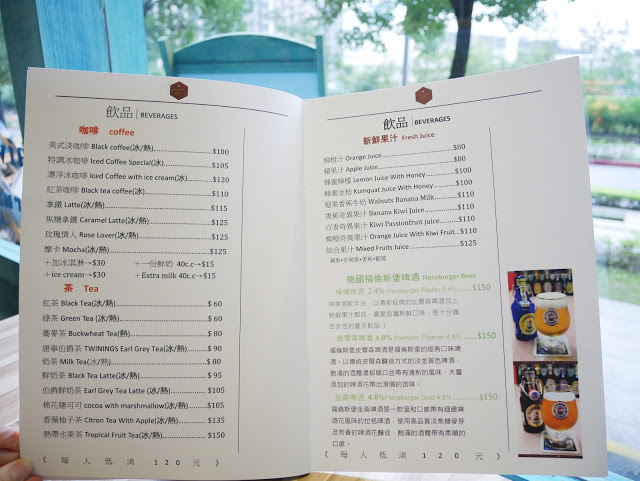 飲品 | BEVERAGES
咖啡 coffee
美式淡咖啡 Black coffee(冰/熱)....................$100
特調冰咖啡 Iced Coffee Special(冰)....................$105
漂浮冰咖啡 Iced Coffee with ice cream(冰)..........$120
紅茶咖啡 Black tea coffee(冰)....................$110
拿鐵 Latte(冰/熱)....................$115
焦糖拿鐵 Caramel Latte(冰/熱)....................$125
玫瑰情人 Rose Lover(冰/熱)....................$125
摩卡 Mocha(冰/熱)....................$125
＋加冰淇淋→$30 ＋一份鮮奶 40c.c→$15
＋ice cream→$30 ＋Extra milk 40c.c→$15
茶 Tea
紅茶 Black Tea(冰/熱)....................$ 60
綠茶 Green Tea(冰/熱)....................$ 60
蕎麥茶 Buckwheat Tea(熱)....................$ 80
唐寧伯爵茶 TWININGS Earl Grey Tea(冰/熱)..........$ 90
奶茶 Milk Tea(冰/熱)....................$ 80
鮮奶茶 Black Tea Latte(冰/熱)....................$ 95
伯爵鮮奶茶 Earl Grey Tea Latte (冰/熱)..........$105
棉花糖可可 cocoa with marshmallow(冰/熱)..........$105
香蘋柚子茶 Citron Tea With Apple(冰/熱)..........$135
熱帶水果茶 Tropical Fruit Tea(冰/熱)..........$150
《 每 人 低 消 1 2 0 元 》
飲品 | BEVERAGES
新鮮果汁 Fresh Juice
柳橙汁 Orange Juice....................$80
蘋果汁 Apple Juice....................$80
蜂蜜檸檬 Lemon Juice With Honey..........$100
蜂蜜金桔 Kumquat Juice With Honey..........$100
堅果香蕉牛奶 Walnuts Banana Milk..........$110
香蕉奇異果汁 Banana Kiwi Juice..........$110
百香奇異果汁 Kiwi Passionfruit juice..........$110
柳橙奇異果汁 Orange Juice With Kiwi Fruit...$110
綜合果汁 Mixed Fruits Juice ..........$125
蘋果+奇異果+香蕉+藍莓
德國福倫斯堡啤酒 Flensburger Beer
檸檬啤酒 2.4% Flensburger Radler 2.4% ......$150
皮爾森啤酒 4.8% Premium Pilsener 4.8% ......$150
福倫斯堡皮爾森啤酒是福倫斯堡的經典口味啤
添加的啤酒花帶出清楚的苦味。
金黃啤酒 4.8% Flensburger Gold 4.8% ..........$150
福倫斯堡金黃啤酒是一款溫和口感帶有細緻啤
酒花風味的拉格啤酒，使用高品質淡焦糖麥芽
及芳香的啤酒花釀成，飽滿的酒體帶有柔順的
口感。
《 每 人 低 消 1 2 0 元 》